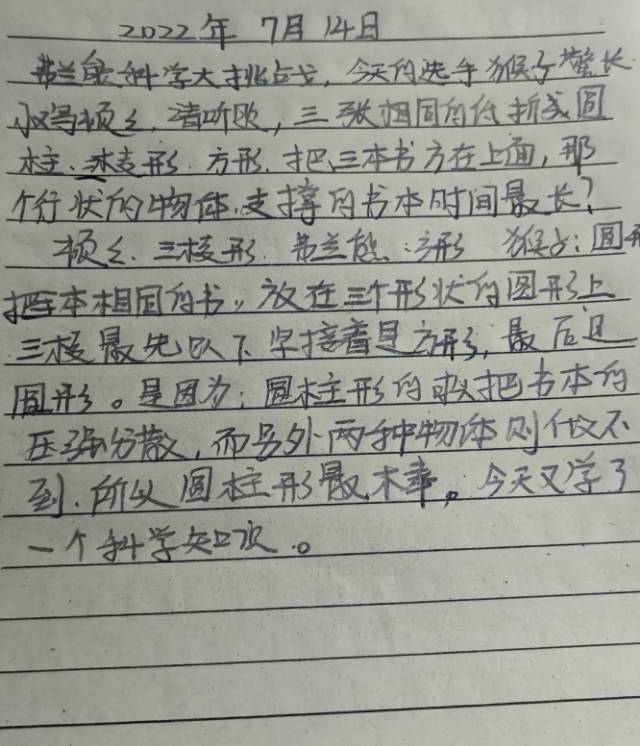 2022年 7月14日
弗兰熊科学大挑占戈,今天的选手猴子警长
小鸡顿乡,请听欧,三张相同的纸折成圆
柱、三支形、方形,把三本书方在上面,那
个行状的物体,支撑的书本时间最长?
顿乡:三棱形 弗兰熊:方形 猴子:圆开
把本相同的书,放在三个形状的图形上
三棱最先以下,学接着是方形,最后是
圆形。是因为:圆柱形的可以把书本的
压强分散,而另外两种物体则做不
到,所以圆柱形最木奉。今天又学了
一个科学知识。